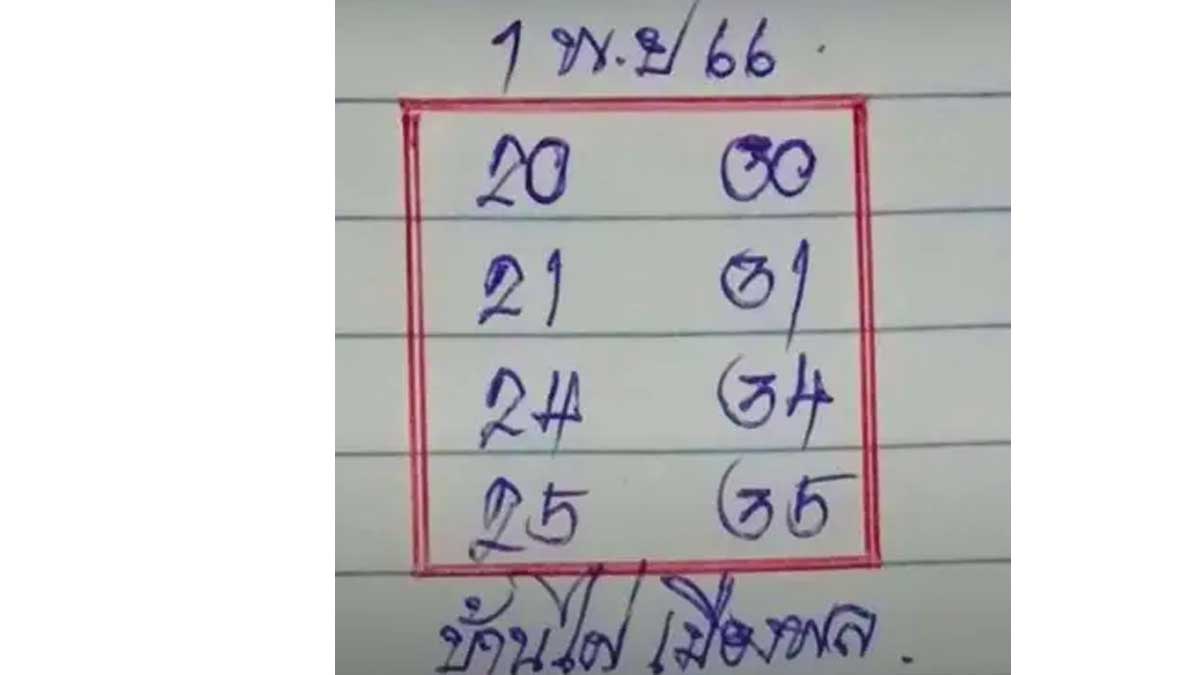 1 พ.ย 66
20 30
21 31
24 34
25 35
บ้านไผ่ เมืองพล.